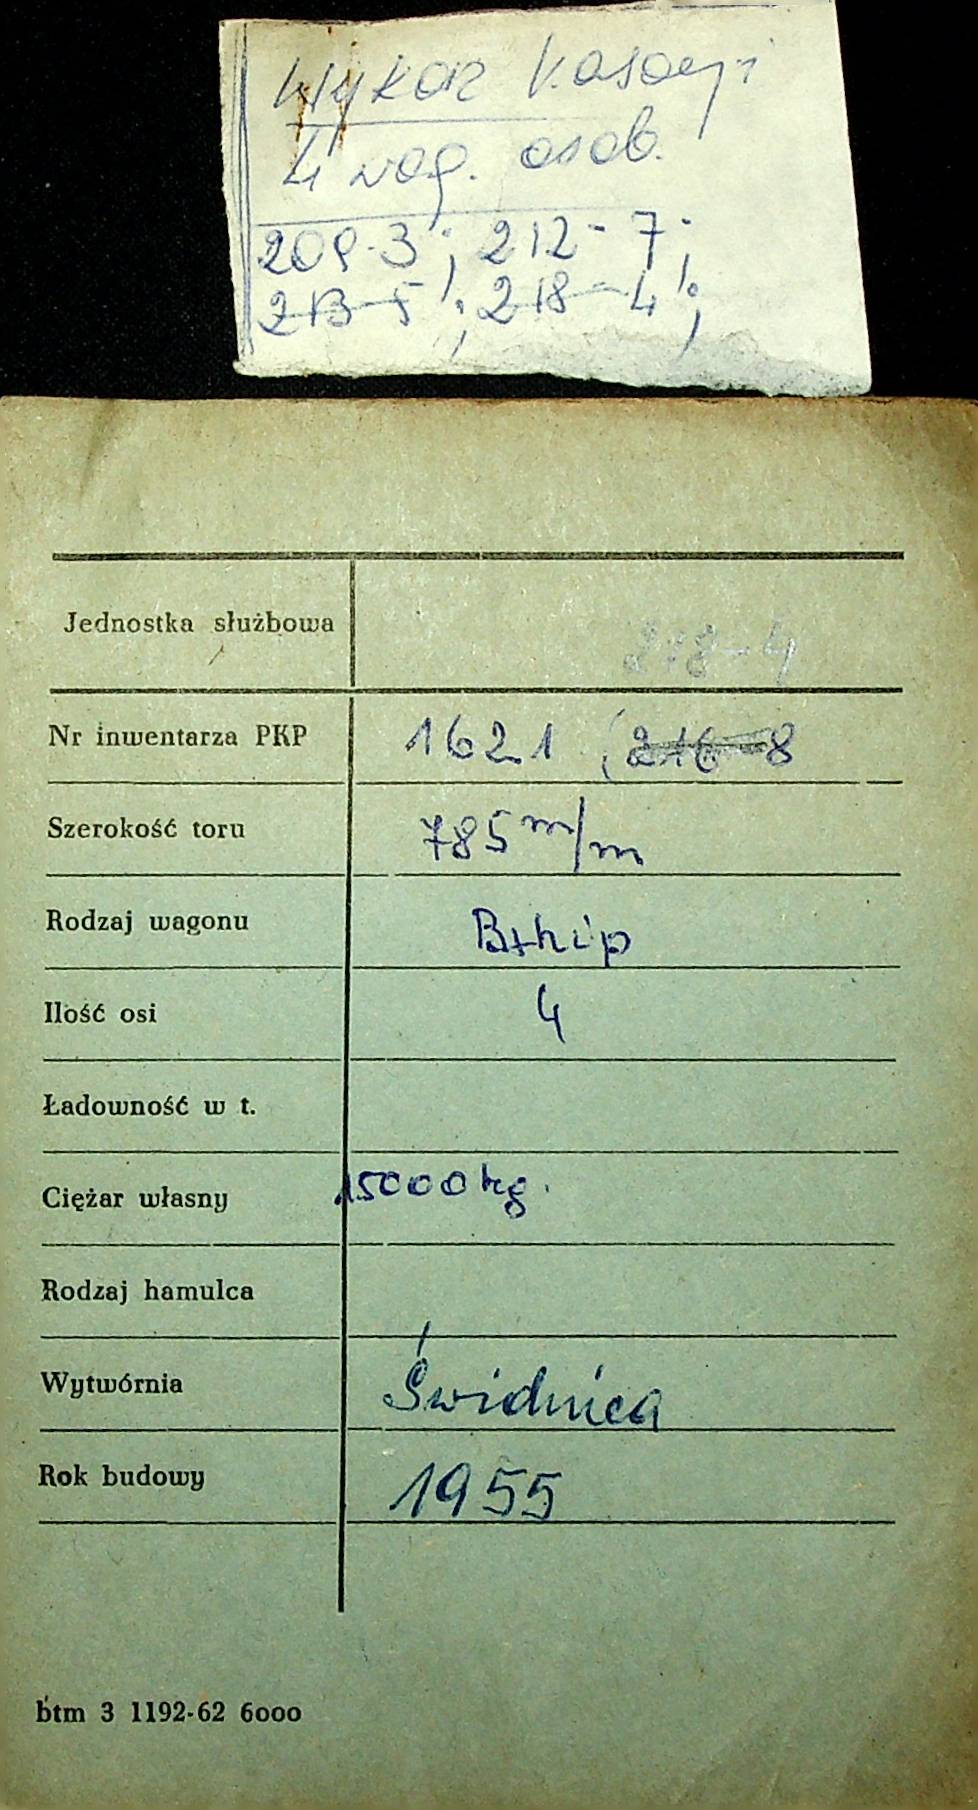 Wykaz kasacji
4 wag. osob.
209-3; 212-7;
213-5; 218-4;
Jednostka służbowa 218-4
Nr inwentarza PKP 1621 (216-8
Szerokość toru 785 m/m
Rodzaj wagonu Bxhip
Ilość osi 4
Ładowność w t.
Ciężar własny 15000 kg.
Rodzaj hamulca
Wytwórnia Świdnica
Rok budowy 1955
btm 3 1192-62 6000